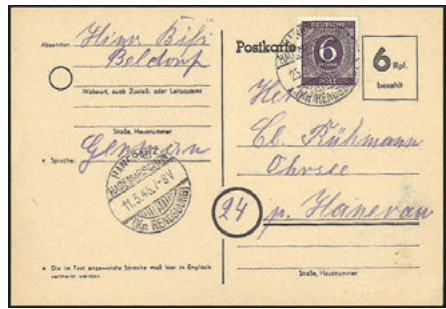 Absender:
Beldorf
Wohnort, auch Zustell- oder Leitpostamt
Straße, Hausnummer
* Sprache: German
HADEMARSCHEN
11.5.46.7-8V
(Kr. RENDSBURG)
* Die im Text angewandte Sprache muß hier in Englisch
vermerkt werden
Postkarte
DEUTSCHE
6
POST
(Kr. RENDSBURG)
6 Rpf.
bezahlt
Cl. Rühmann
24 p. Hanerau
Straße, Hausnummer